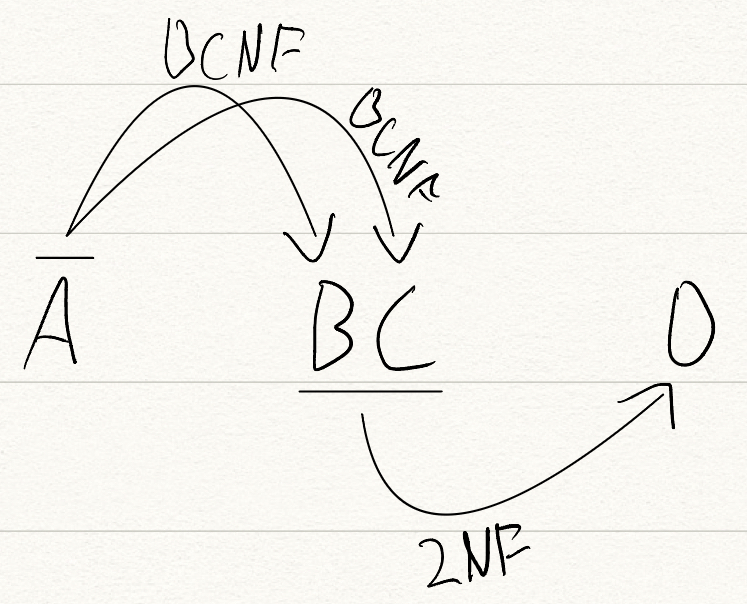 BCNF
BCNF
A BC D
2NF